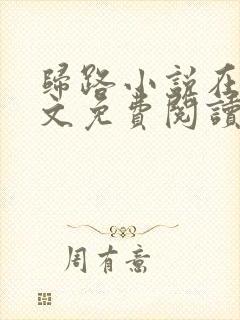 歸路小說在
文免費閱讀
周有意